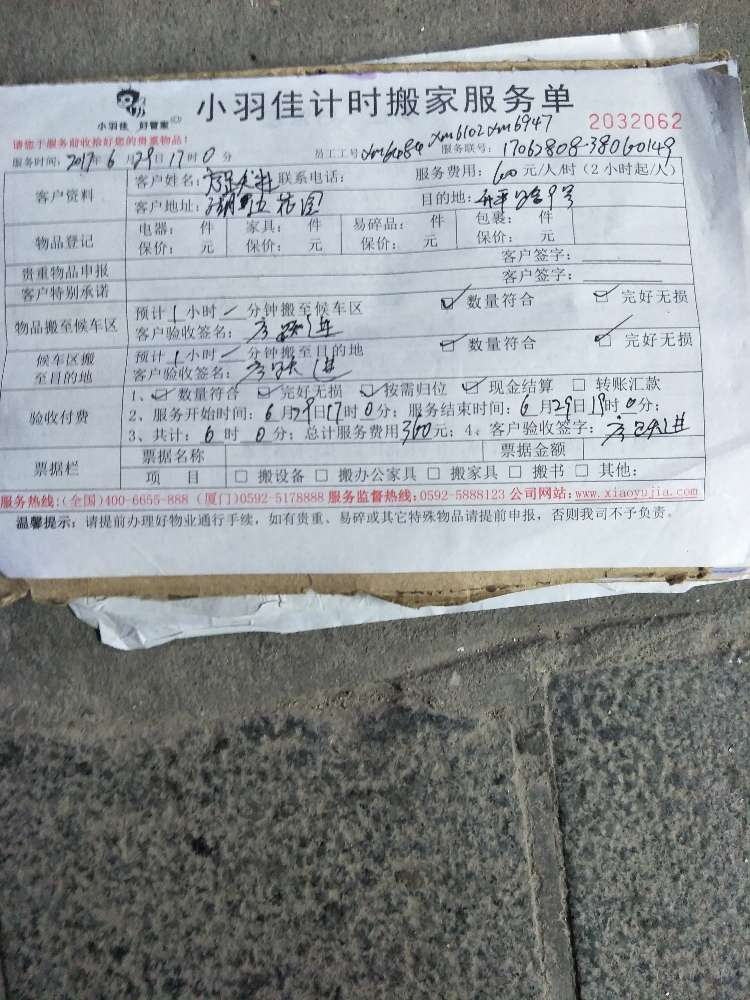 小羽佳 好管家
小羽佳计时搬家服务单
2032062
请您于服务前收拾好您的贵重物品！
服务时间：2017年6月29日17时0分 员工工号 xm6102 xm6947 服务联号：
客户资料 客户姓名： 联系电话： 服务费用：60元/人/时（2小时起/人）
客户地址： 花园 目的地：
物品登记 电器： 件 家具： 件 易碎品： 件 包裹： 件
保价： 元 保价： 元 保价： 元 保价： 元
贵重物品申报 客户签字：
客户特别承诺 客户签字：
物品搬至候车区 预计1小时／分钟搬至候车区 ☑数量符合 ☑完好无损
客户验收签名：
候车区搬至目的地 预计1小时／分钟搬至目的地 ☑数量符合 ☑完好无损
客户验收签名：
验收付费 1、☑数量符合 ☑完好无损 ☑按需归位 ☑现金结算 □转账汇款
2、服务开始时间：6月29日17时0分；服务结束时间：6月29日19时0分；
3、共计：6时0分；总计服务费用360元；4、客户验收签字：
票据栏 票据名称 票据金额
项 目 □搬设备 □搬办公家具 □搬家具 □搬书 □其他：
服务热线：(全国)400-6655-888 (厦门)0592-5178888 服务监督热线：0592-5888123 公司网站：www.xiaoyujia.com
温馨提示：请提前办理好物业通行手续，如有贵重、易碎或其它特殊物品请提前申报，否则我司不予负责。